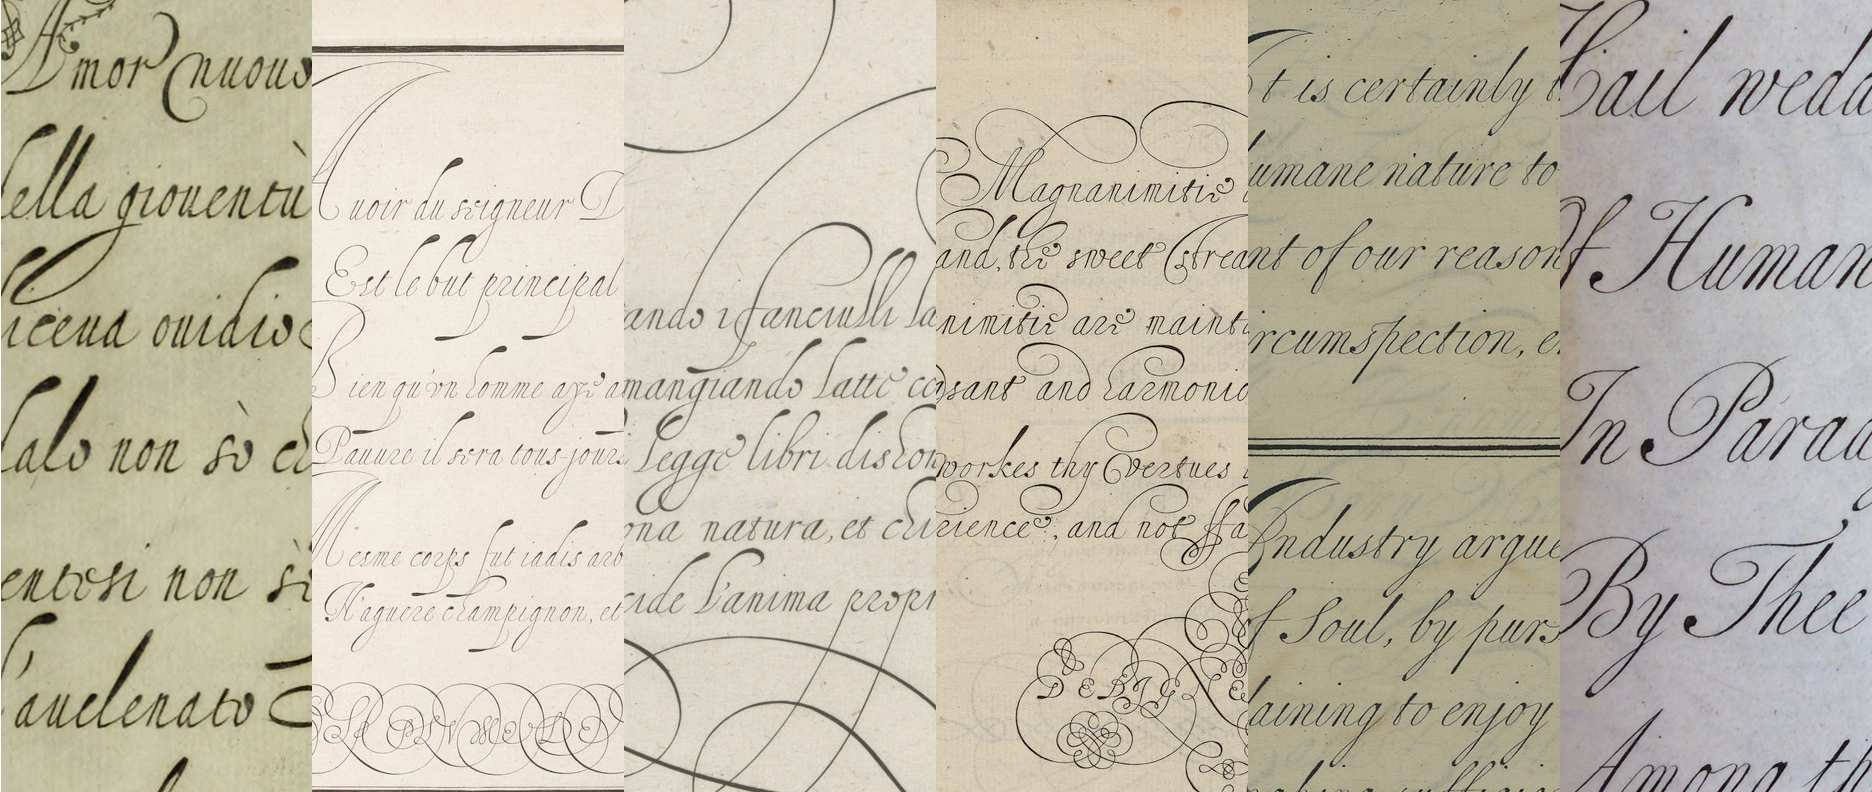 Amor nuouo
ella giouentù
iceua ouidio
alo non sò ch
entosi non sì
l'auelenato
Auoir du seigneur D
Est le but principal
Bien qu'vn homme aye a
Pauure il sera tous jours
Mesme corps fut iadis arb
Naguere champignon, et
ando i fanciulli la
mangiando latte co
Legge libri dishon
ona natura, et chi
cide l'anima propri
Magnanimitie
and, the sweet Strea
nimitie are mainta
sant and harmonio
workes thy Vertues
rience, and not Fa
It is certainly t
umane nature to
nt of our reason
rcumspection, e
Industry argue
f Soul, by purs
aining to enjoy
Hail wedd
Of Human
In Parad
By Thee
Among th